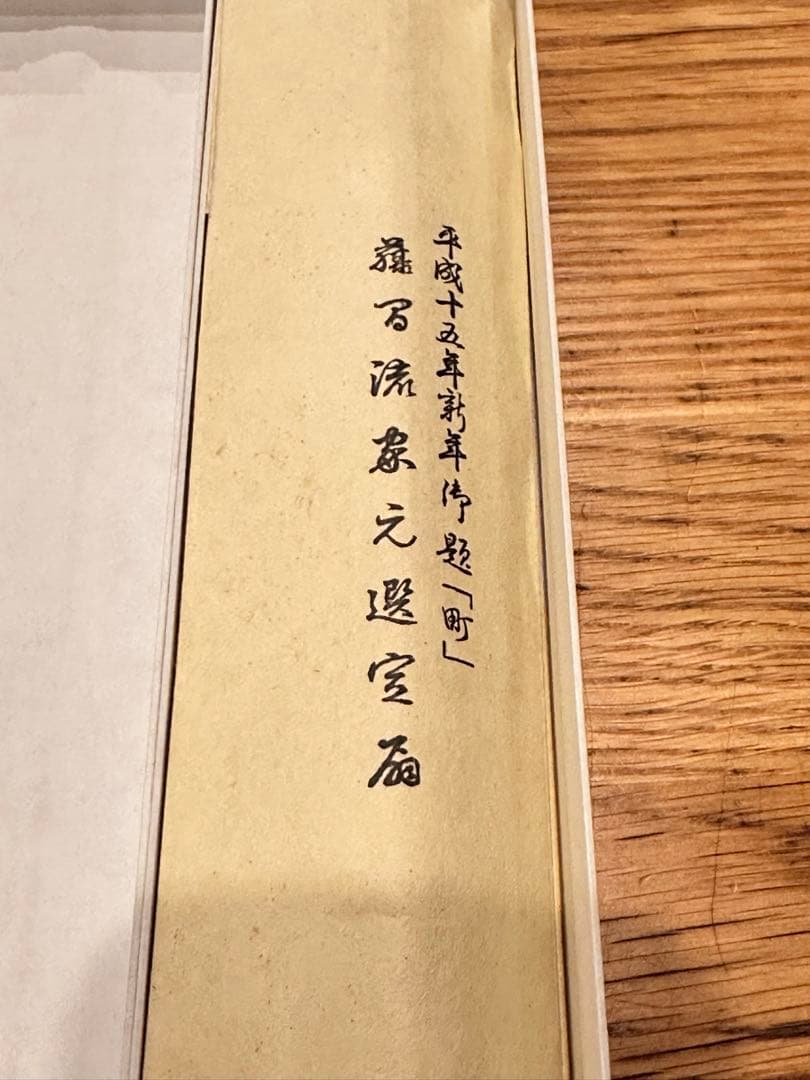 平成十五年新年御題「町」
藤間流家元選定扇